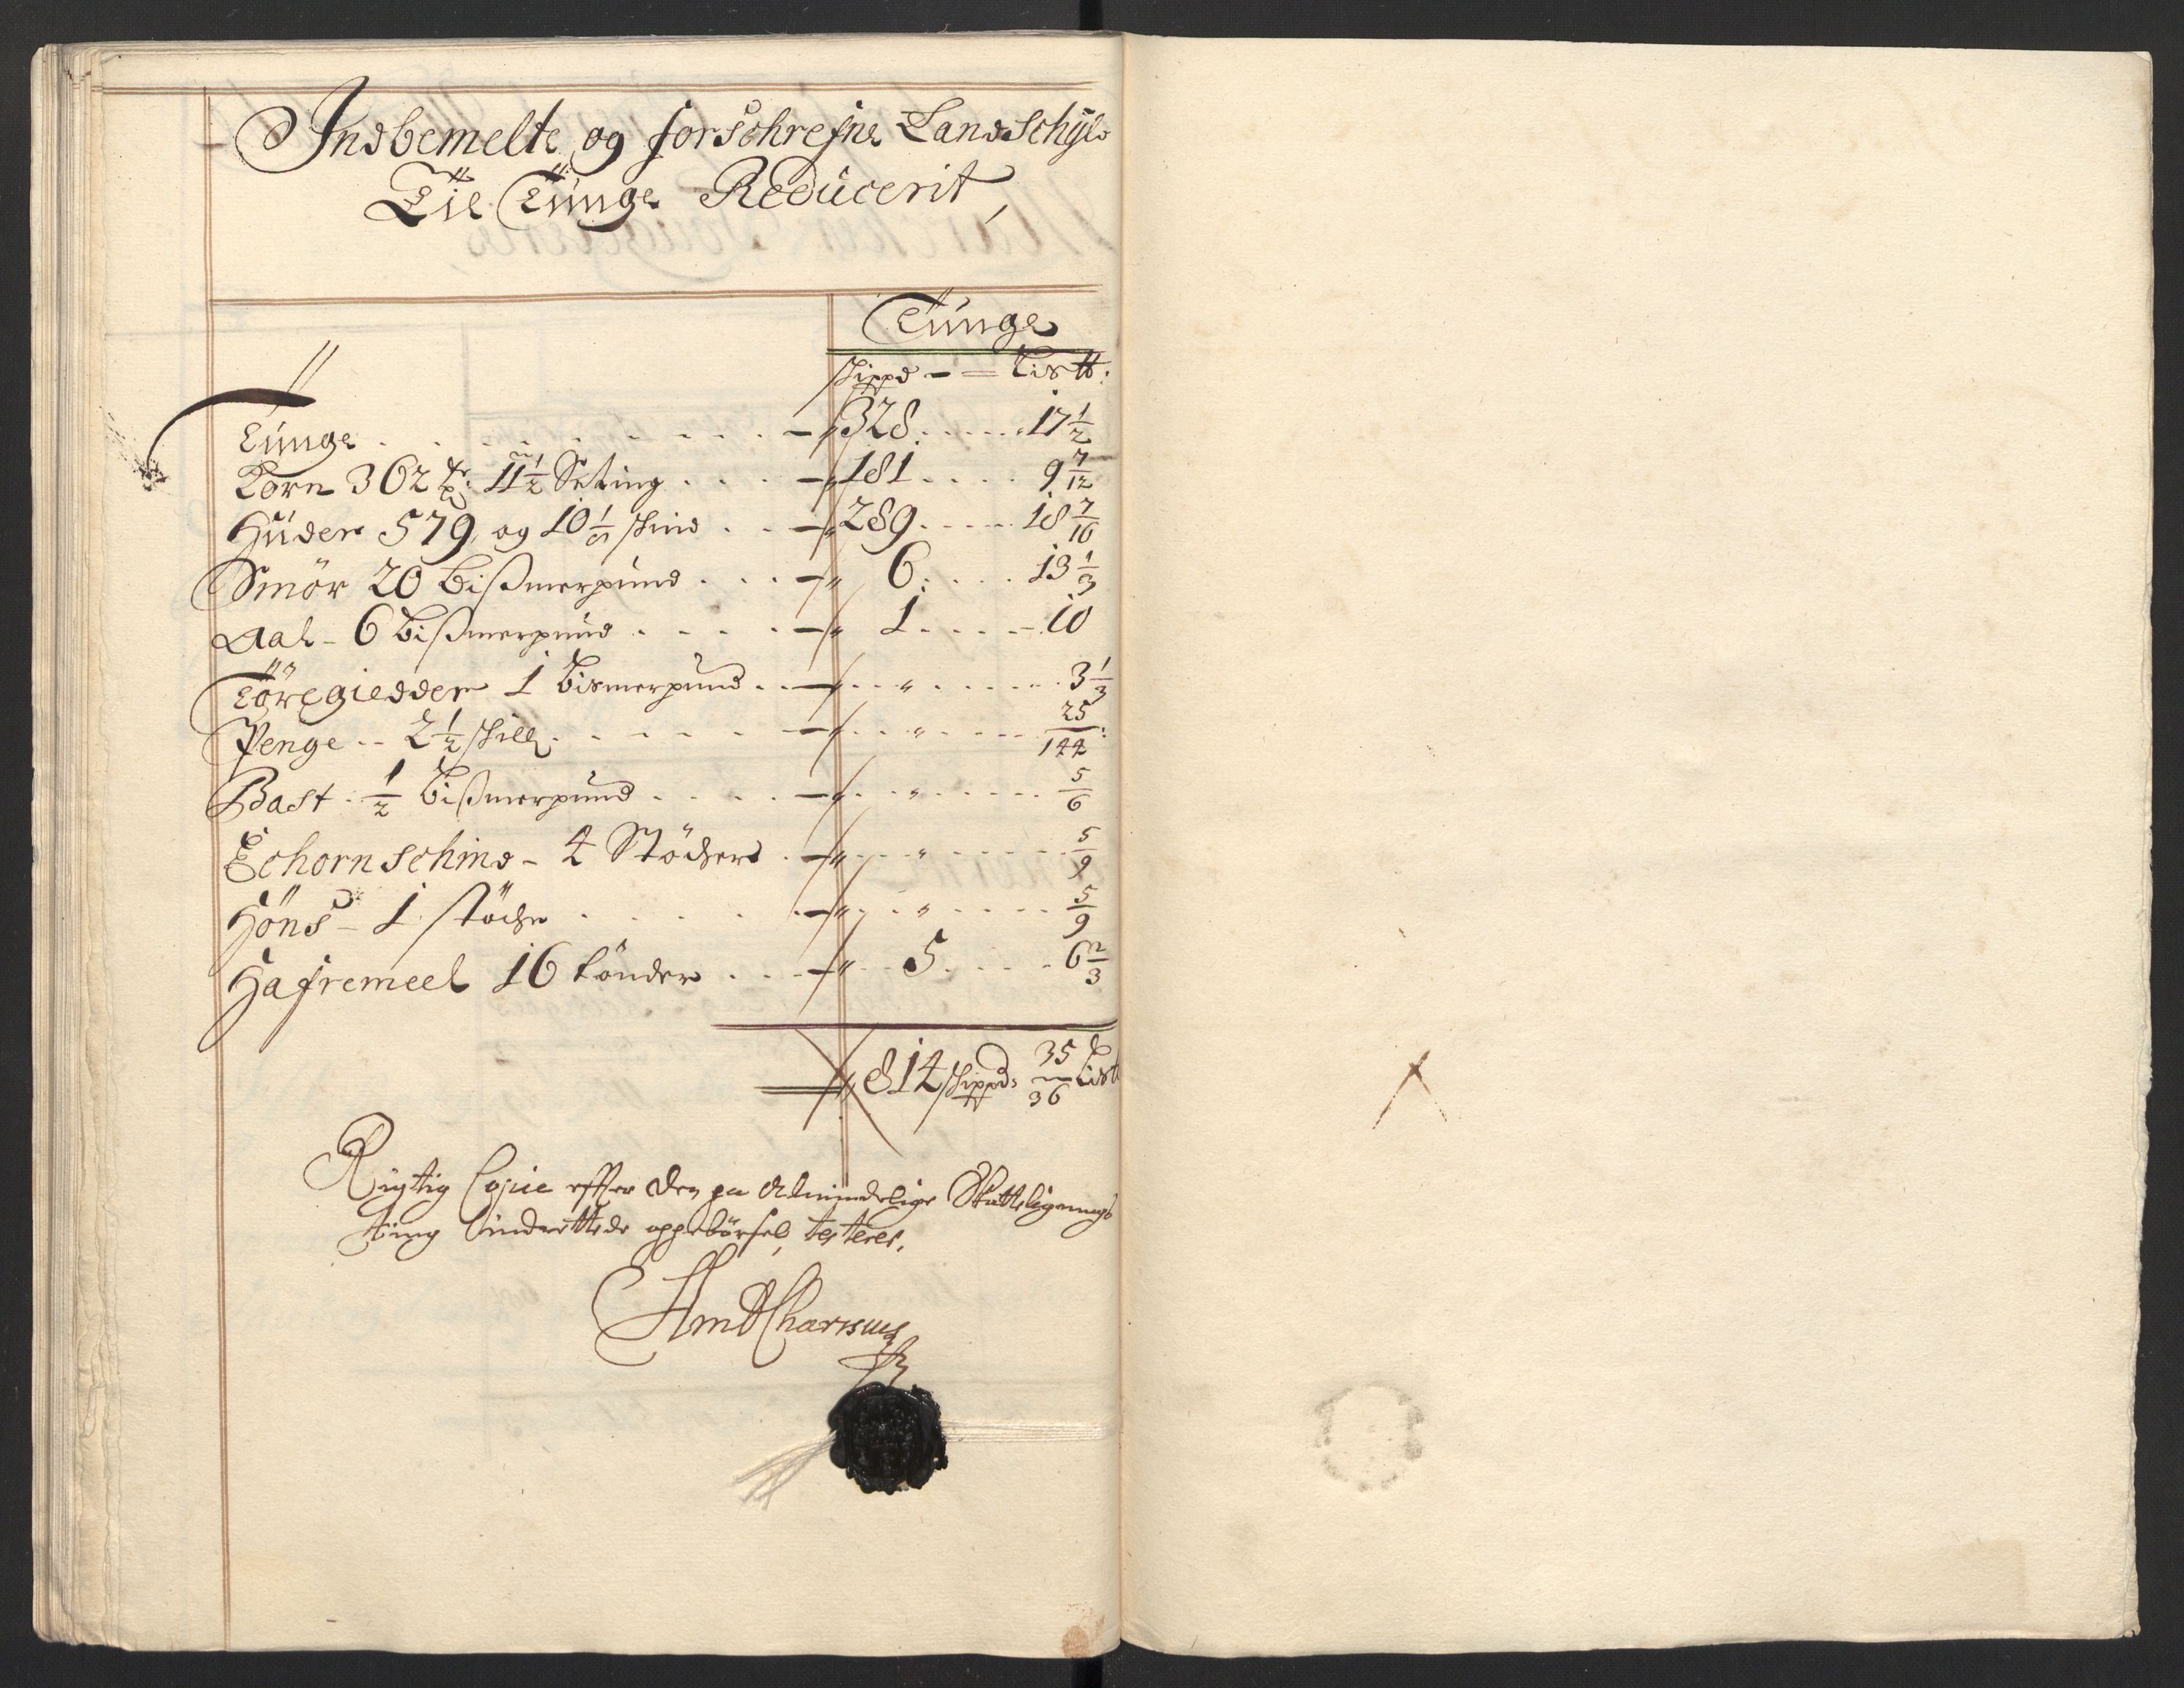 Indbemelte og forschrefne Landschyld
Til Tunge Reducerit,
Tunge
Skippd — Lis℔:
Tunge . . . 328 . . . 17 1/2
Korn 362 tr: 11 1/2 Seting . . . 181 . . . 9 7/12
Huder 579, og 10 1/5 skind . . . 289 . . . 18 7/10
Smör 20 bismerpund . . . 6 . . . 13 1/3
Aal - 6 bismerpund . . . 1 . . . 10
Töregiedder 1 bismerpund . . . " . . . 3 1/3
Penge .. 2 1/2 skill . . . " . . . 25/144
Bast . 1/2 bismerpund . . . " . . . 5/6
Echornschind - 4 Stöcher . . . " . . . 5/9
Höns - 1 stöche . . . " . . . 5/9
Hafremeel 16 tönder . . . 5 . . . 6 2/3
814 skippd: 35/36 Lis℔
Rigtig Copie effter den paa Almindelige Skattelignings
ting indrettede oppebörsel, testerer.